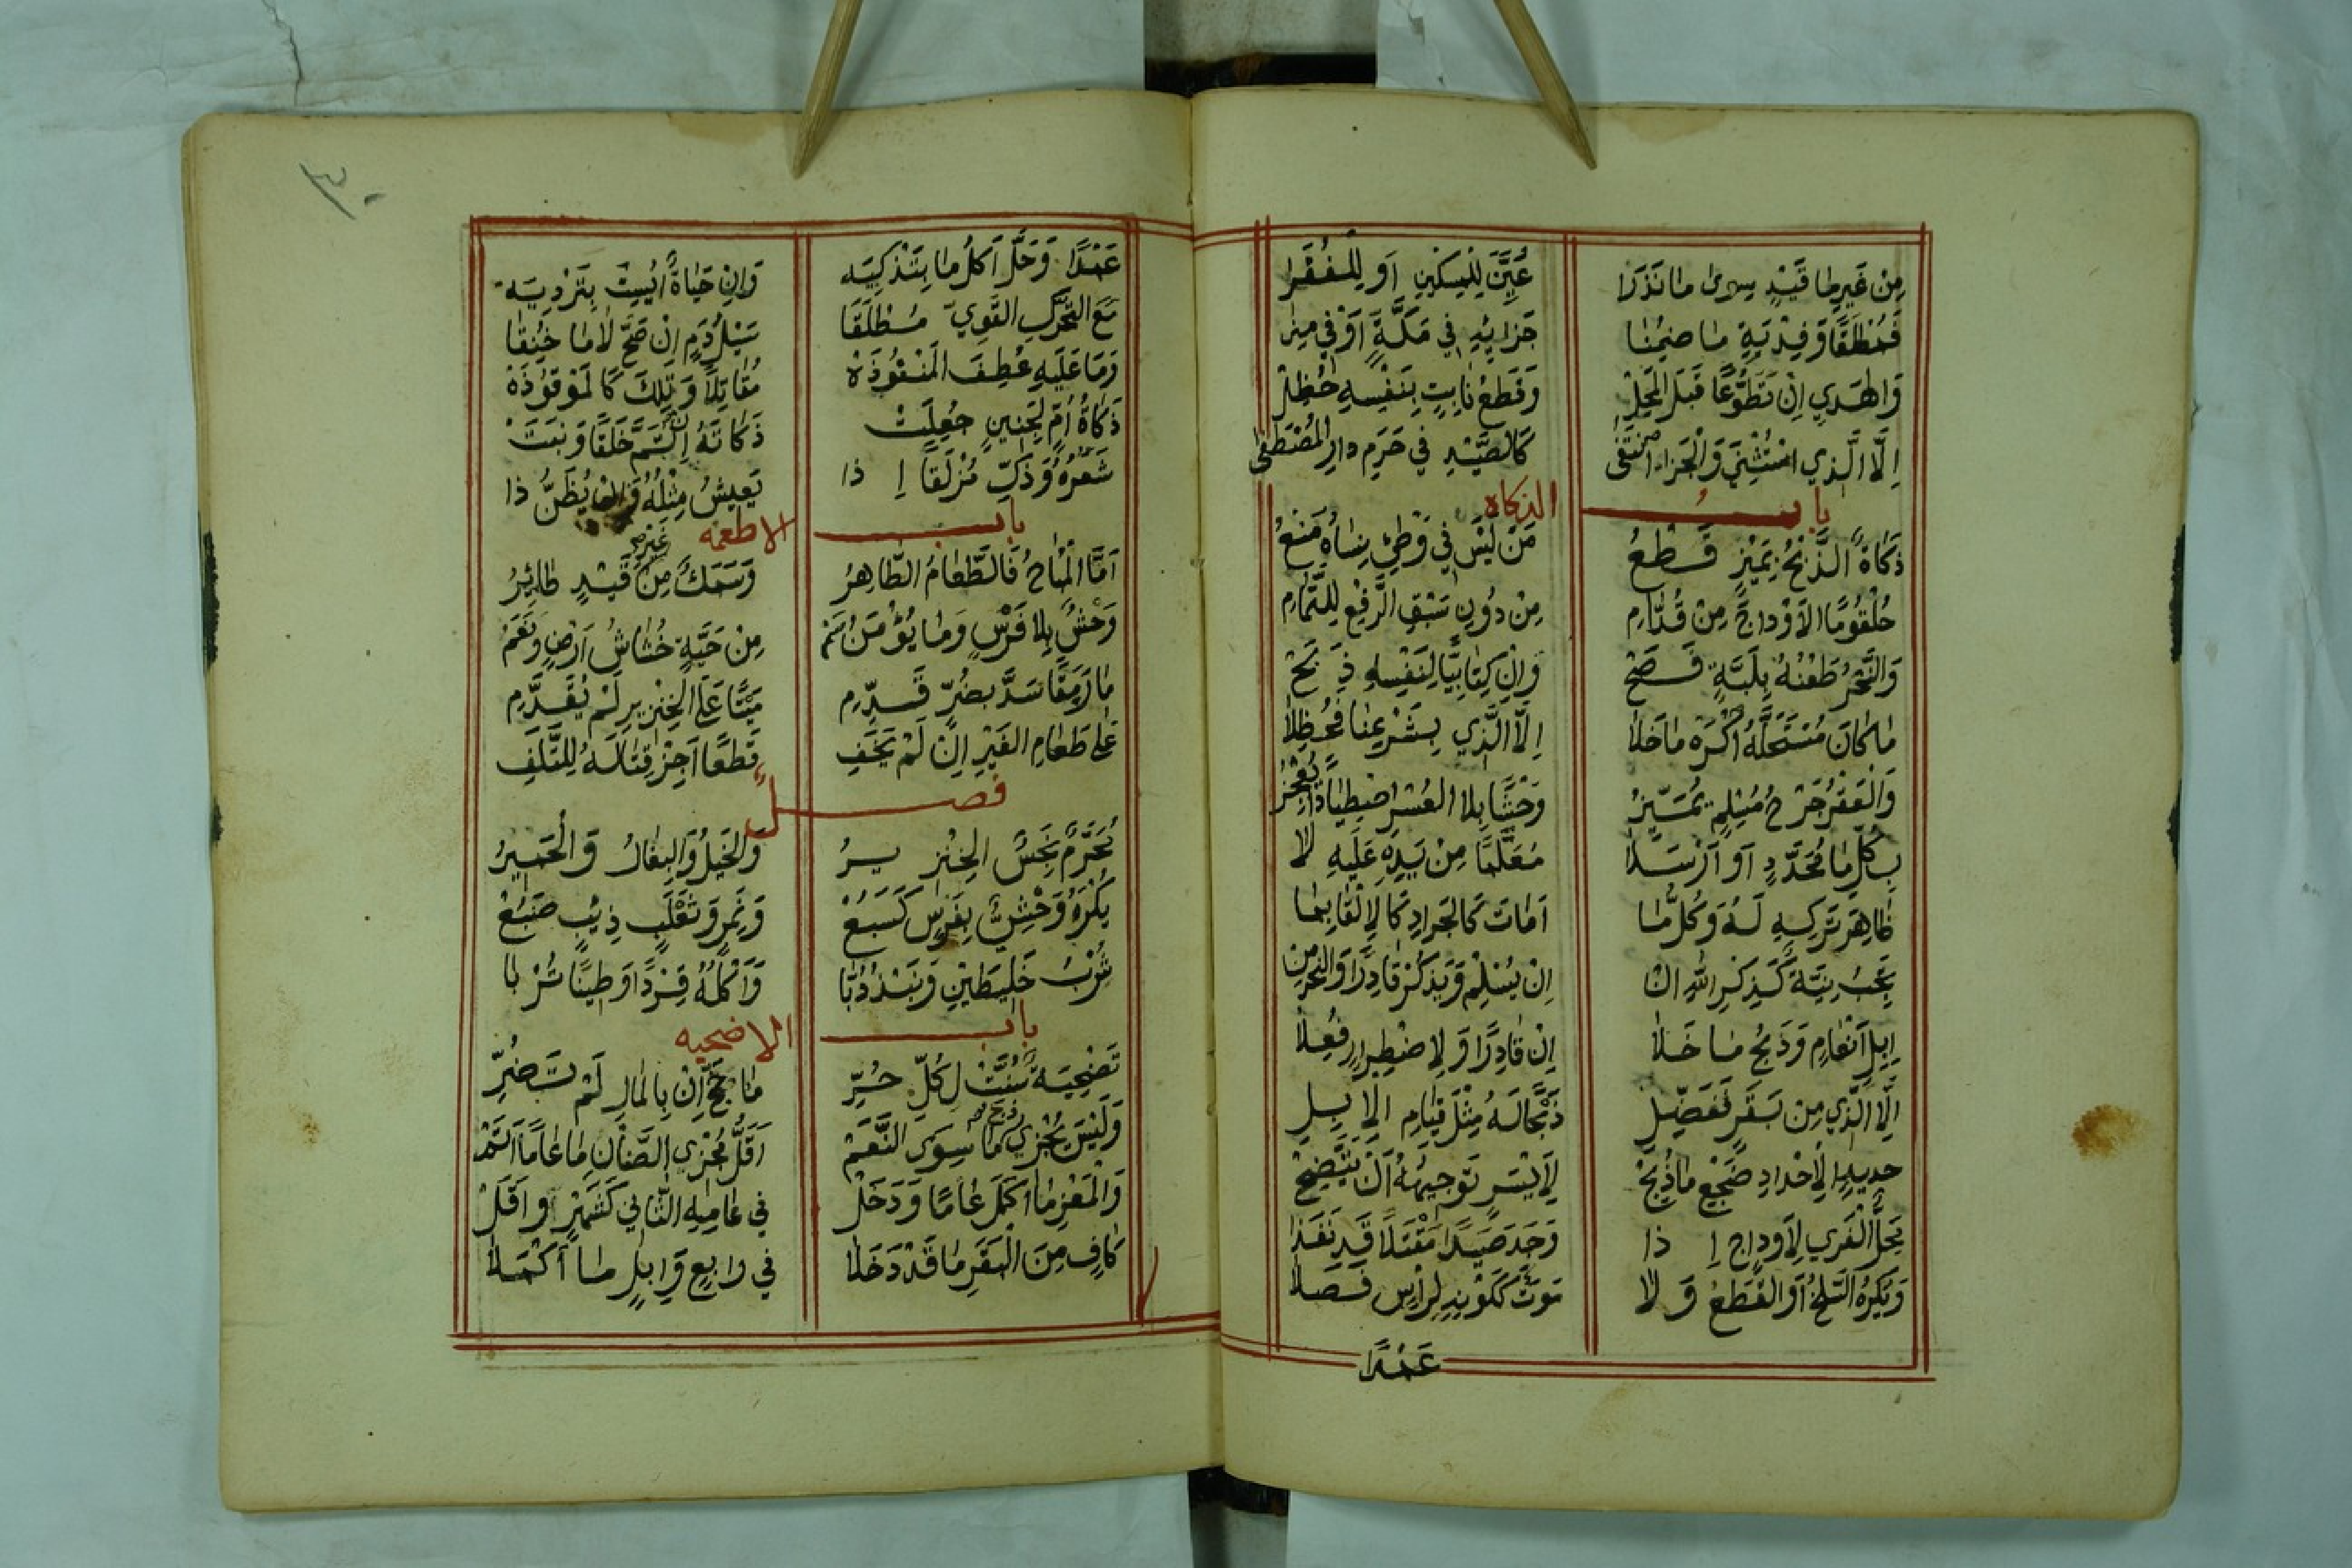 مِنْ غَيْرِ مَا قَيْدٍ سِوَى مَا نَذَرَا عُيِّنَ لِلْمِسْكِينِ اَو لِلْفُقَرَا
فَمُطْلَقًا وَفِدْيَةٍ مَا ضُمِّنَا جَزَائِهِ فِي مَكَّةٍ اَوْ فِي مِنٰى
وَالهَدْيِ اِنْ تَطَوُّعًا قَبْلَ المَحِلْ وَقَطْعُ نَابِتٍ بِنَفْسِهِ حُظِلْ
اِلَّا الَّذِي اسْتُثْنِيَ وَالْجَزَاء انْتَفَى كَالصَّيْدِ فِي حَرَمِ دَارِ المُصْطَفَى
بابُ الذكاه
ذَكَاةٌ الذَّبْحُ بِمَيْزٍ قَطْعُ مَنْ لَيْسَ فِي وَطْئِ نِسَاهُ مَنْعُ
حُلْقُومًا الاَوْدَاجَ مِنْ قُدَّامِ مِنْ دُونِ سَبْقِ الرَّفْعِ لِلتَّمَامِ
وَالنَّحْرُ طَعْنُهُ بِلَبَّةٍ فَصَحْ وَاِنْ كِتَابِيًّا لِنَفْسِهِ ذَبَحْ
مَا كَانَ مُسْتَحَلَّهُ اكْرَهْ مَا خَلَا اِلَّا الَّذِي بِشَرْعِنَا فَحُظِلَا
وَالْعَقْرُ جَرْحُ مُسْلِمٍ مُمَيِّزُ وَحْشًا بِلَا العُسْرِ اصْطِيَادًا يُعْجِزُ
بِكُلِّ مَا مُحَدَّدٍ اَوْ اَرْسَلَا مُعَلَّمًا مِنْ يَدِهِ عَلَيْهِ لَا
ظَاهِرَ تَرْكِهِ لَهُ وَكُلُّ مَا اَمَاتَ كَالجَرَادِ كَالاِلْقَا بِمَا
يَجِبُ نِيَّةٌ كَذِكْرِ اللهِ ان اِنْ يُسْلِمْ وَيَذْكُرْ قَادِرًا وَالنَّحْرُ مِنْ
اِبِلِ اَنْعَامٍ وَذَبْحُ مَا خَلَا اِنْ قَادِرًا وَلِاضْطِرَارٍ فُعِلَا
اِلَّا الَّذِي مِنْ بَقَرٍ فَفَضِّلِ ذَبْحًا لَهُ مِثْلَ قِيَامِ الاِبِلِ
حَدِيدِ اِحْدَادٍ ضَجْعِ مَا ذُبِحْ لِاَيْسَرٍ تَوْجِيهُهُ اَنْ يَتَّضِحْ
مَحَلُّ الفَرْيِ لِاَوْدَاجٍ اِذَا وَجَدَ صَيْدًا مَقْتَلًا قَدْ نَفَذَا
وَيُكْرَهُ السَّلْخُ اَوِ القَطْعُ وَلَا مَوْتَ كَكَوْنِهِ لِرَأْسٍ فَصَلَا
عَمْدًا
٣٠
عَمْدًا وَحَلَّ اَكْلُ مَا بِتَذْكِيَه وَاِنْ حَيَاةٌ اُيِسَتْ بِتَرْدِيَه
مَعَ التَّحَرُّكِ القَوِيِّ مُطْلَقَا سَيْلُ دَمٍ اِنْ صَحَّ لَا مَا خُنِقَا
وَمَا عَلَيْهِ عُطِفَ المَنْفُوذَهْ مَقَاتِلًا وَتِلْكَ كَالمَوْقُوذَهْ
ذَكَاةُ اُمٍّ لِجَنِينٍ جُعِلَتْ ذَكَاتَهُ اِنْ تَمَّ خَلْقًا وَنَبَتْ
شَعْرُهُ وَذَكِّ مُزْلَقًا اِذَا يَعِيشُ مِثْلُهُ وَاِنْ يُظَنُّ ذَا
باب الاطعمه
اَمَّا الْمُبَاحُ فَالطَّعَامُ الطَّاهِرُ وَسَمَكٌ مِنْ غَيْرِ قَيْدٍ طَائِرُ
وَحْشٌ بِلَا فَرْسٍ وَمَا يُؤْمَنُ سَمْ مِنْ حَيَّةٍ خُشَاشُ اَرْضٍ وَنَعَمْ
مَا رَمَقًا سَدَّ بِضُرٍّ قَدِّمِ مَيْتًا عَلَى الخِنْزِيرِ لَمْ يُقَدَّمِ
عَلَى طَعَامِ الغَيْرِ اِنْ لَمْ يَخَفِ قَطْعًا اَجِزْ قِتَالَهُ لِلتَّلَفِ
فصل
مُحَرَّمٌ نَجِسٌ الخِنْزِيرُ وَالخَيْلُ وَالبِغَالُ وَالْحَمِيرُ
يُكْرَهُ وَحْشِيٌّ بِفَرْسٍ كَسَبُعْ وَنَمِرٍ وَثَعْلَبٍ ذِيبٍ ضَبُعْ
شُرْبُ خَلِيطَيْنِ وَنَبْذُ دُبَّا وَاَكْلُهُ قِرْدًا وَطِينًا تُرْبَا
باب الاضحيه
تَضْحِيَةٌ سُنَّتْ لِكُلِّ حُرِّ مَا حَجَّ اَنْ بِالمَالِ لَمْ تَضُرِّ
وَلَيْسَ يُجْزِي ذبح مَا سِوَى النَّعَمْ اَقَلُّ مُجْزِي الضَّأْنِ مَا عَامًا اَتَمْ
وَالْمَعْزِ مَا اَكْمَلَ عَامًا وَدَخَلْ فِي عَامِهِ الثَّانِي كَشَهْرٍ وَاَقَلْ
كَافٍ مِنَ الْبَقَرِ مَا قَدْ دَخَلَا فِي رَابِعٍ وَابِلٍ مَا اَكْمَلَا